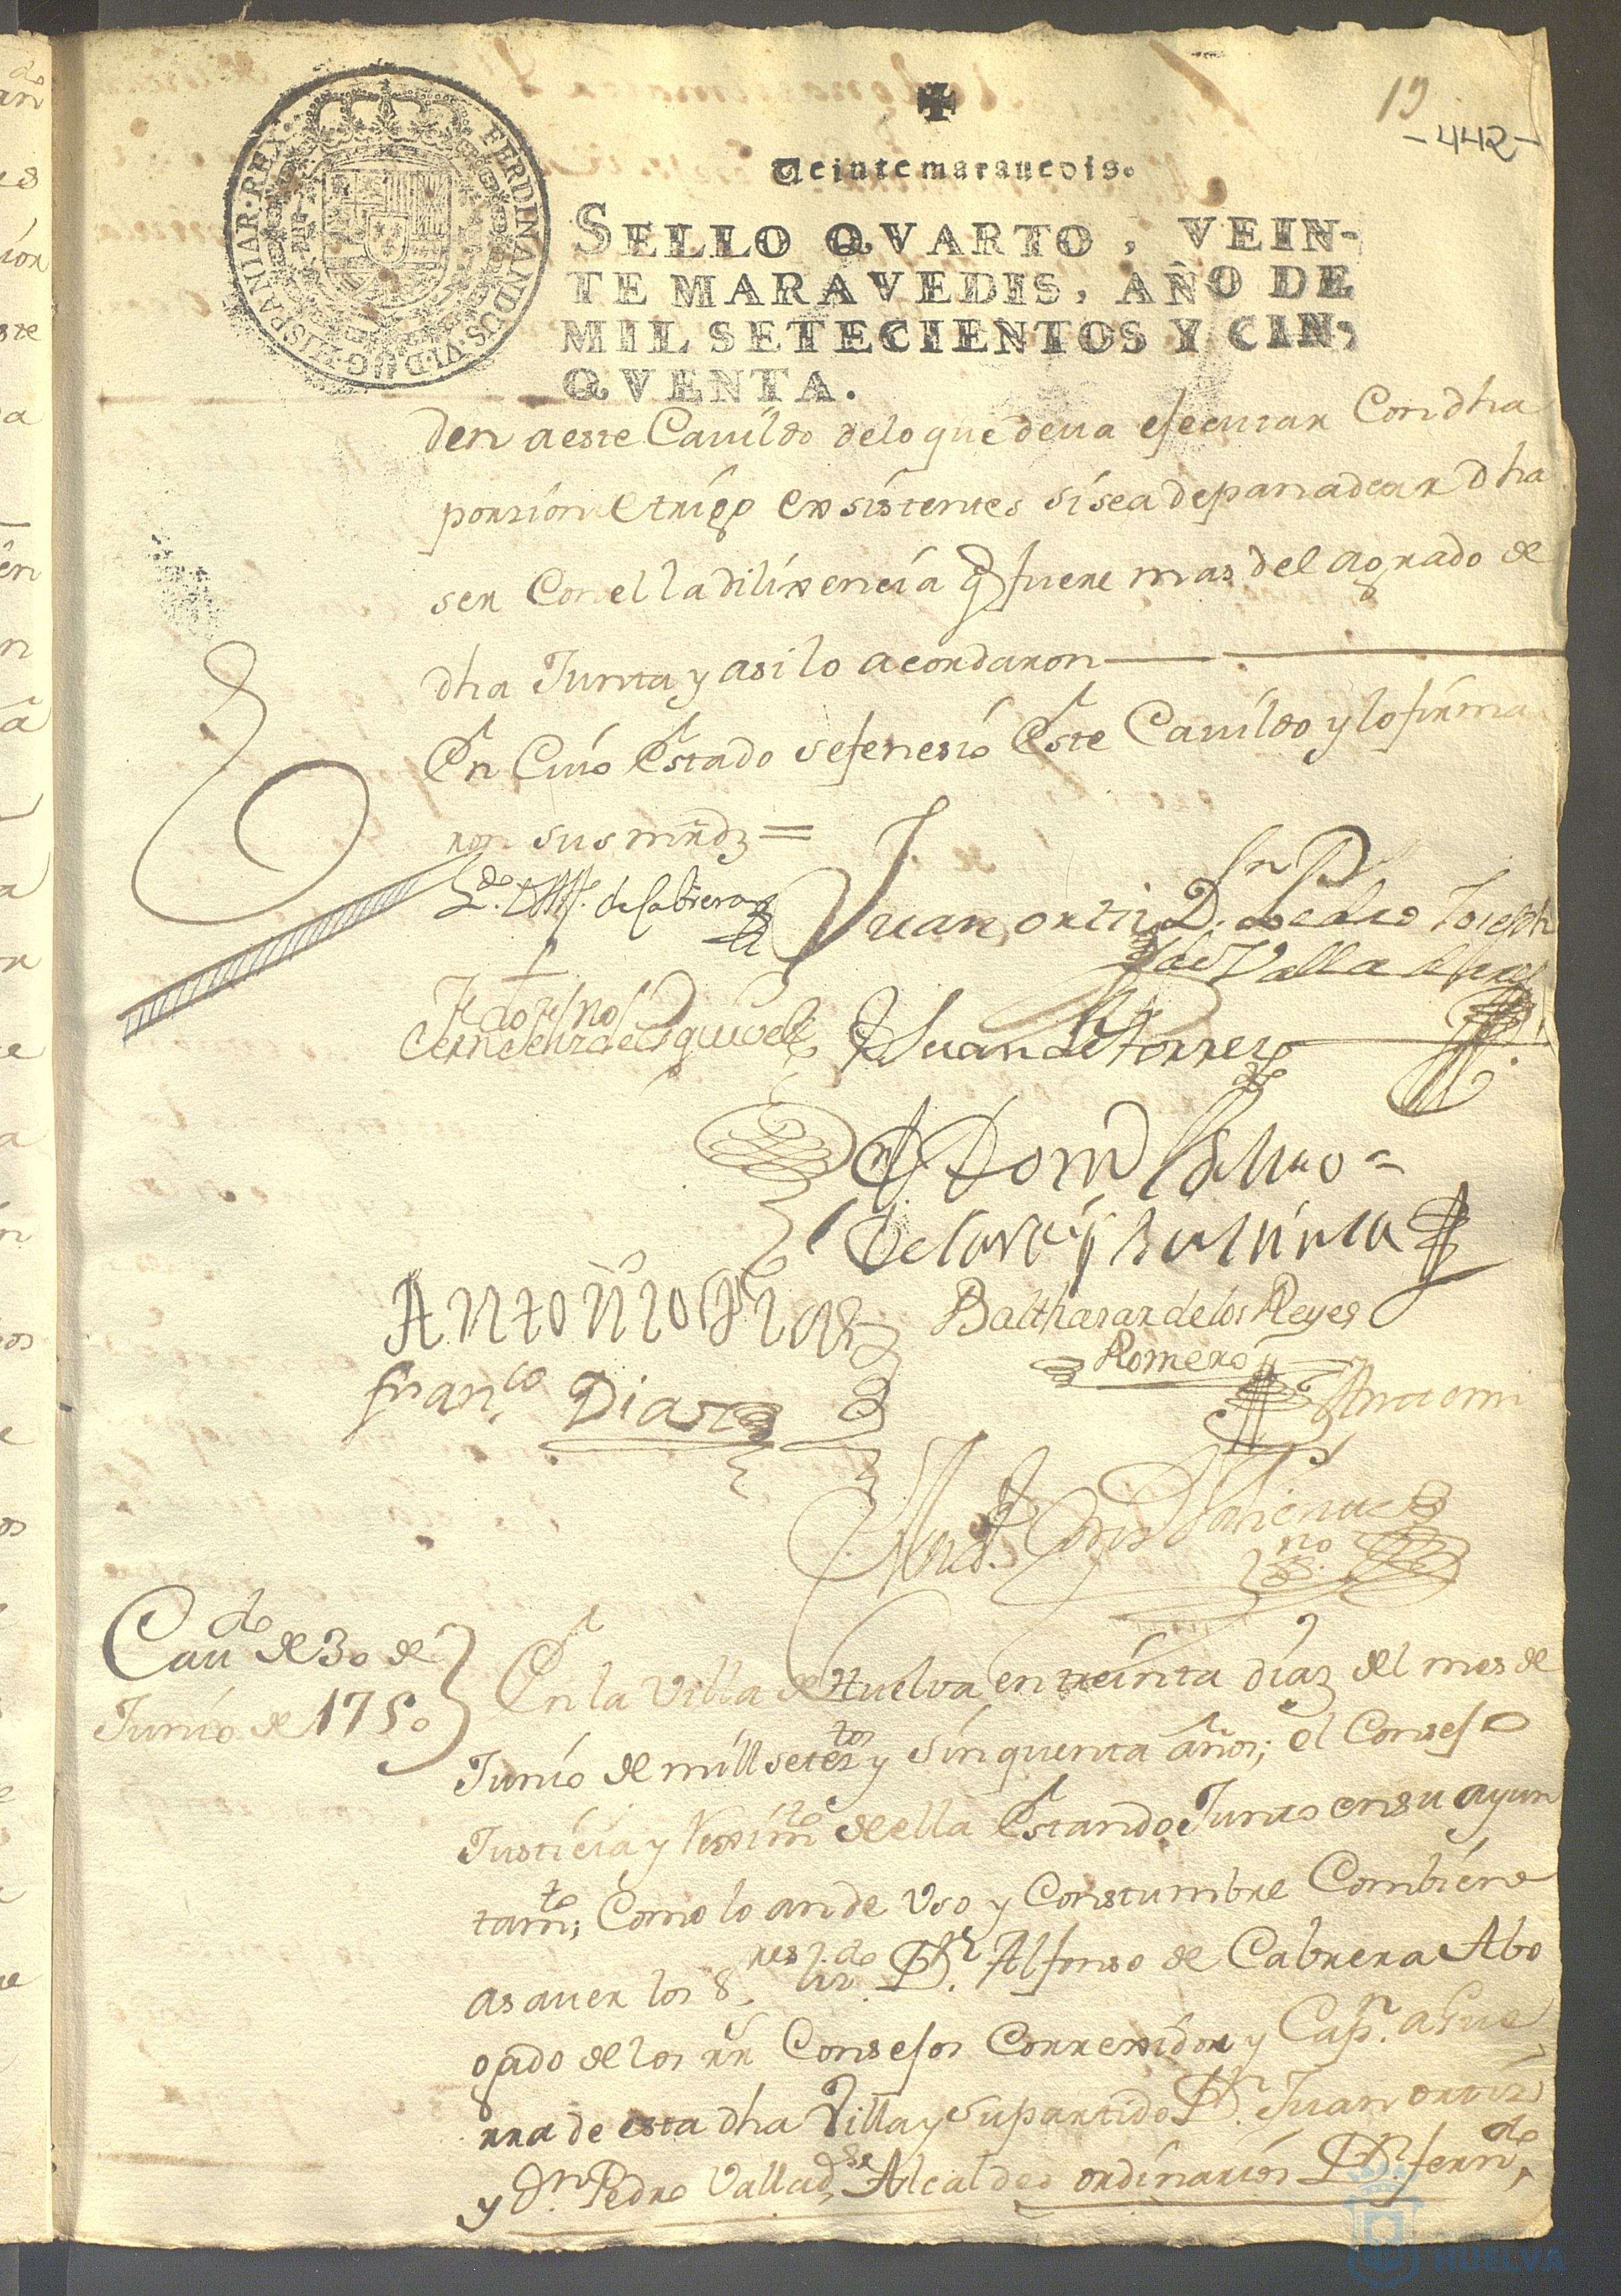 19
-442-
FERDINANDUS·VI·D·G·HISPANIAR·REX·
Veinte maravedis.
SELLO QVARTO, VEIN-
TE MARAVEDIS, AÑO DE
MIL SETECIENTOS Y CIN-
QVENTA.
den a este Cavildo de lo que deva ejecutar Con dha
porzion de trigo exsistentes si sea de panadear o ha
ser Con el la dilixencia q fuere mas del agrado de
dha Junta y asi lo acordaron
En Cuio Estado se fenesió Este Cavildo y lo firma
ron sus mrdz =
Ldo. D. Alfo. de Cabrera
Juan ortiz
Dn. Pedro Joseph
de Valladares
Fernd
de Esquivel
Juan de torres
Antonio Dias
Balthasar de los Reyes
Romero
Franco. Dias
Ante mi
Cavdo de 30 de
Junio de 1750
En la Villa de Huelva en treinta dias del mes de
Junio de mill setezos y sinquenta años; el Consejo
Justicia y Reximto de ella Estando Junto en su ayun
tamto; Como lo an de Uso y Constumbre Combiene
a saver los Sres. Lizdo. Dn. Alfonso de Cabrera Abo
gado de los RR Consejos Correxidor y Capn. a Gue
rra de esta dha Villa y su partido Dn. Juan ortiz
y Dn. Pedro Valladrs Alcaldes ordinarios Dn. ferndo,
HUELVA